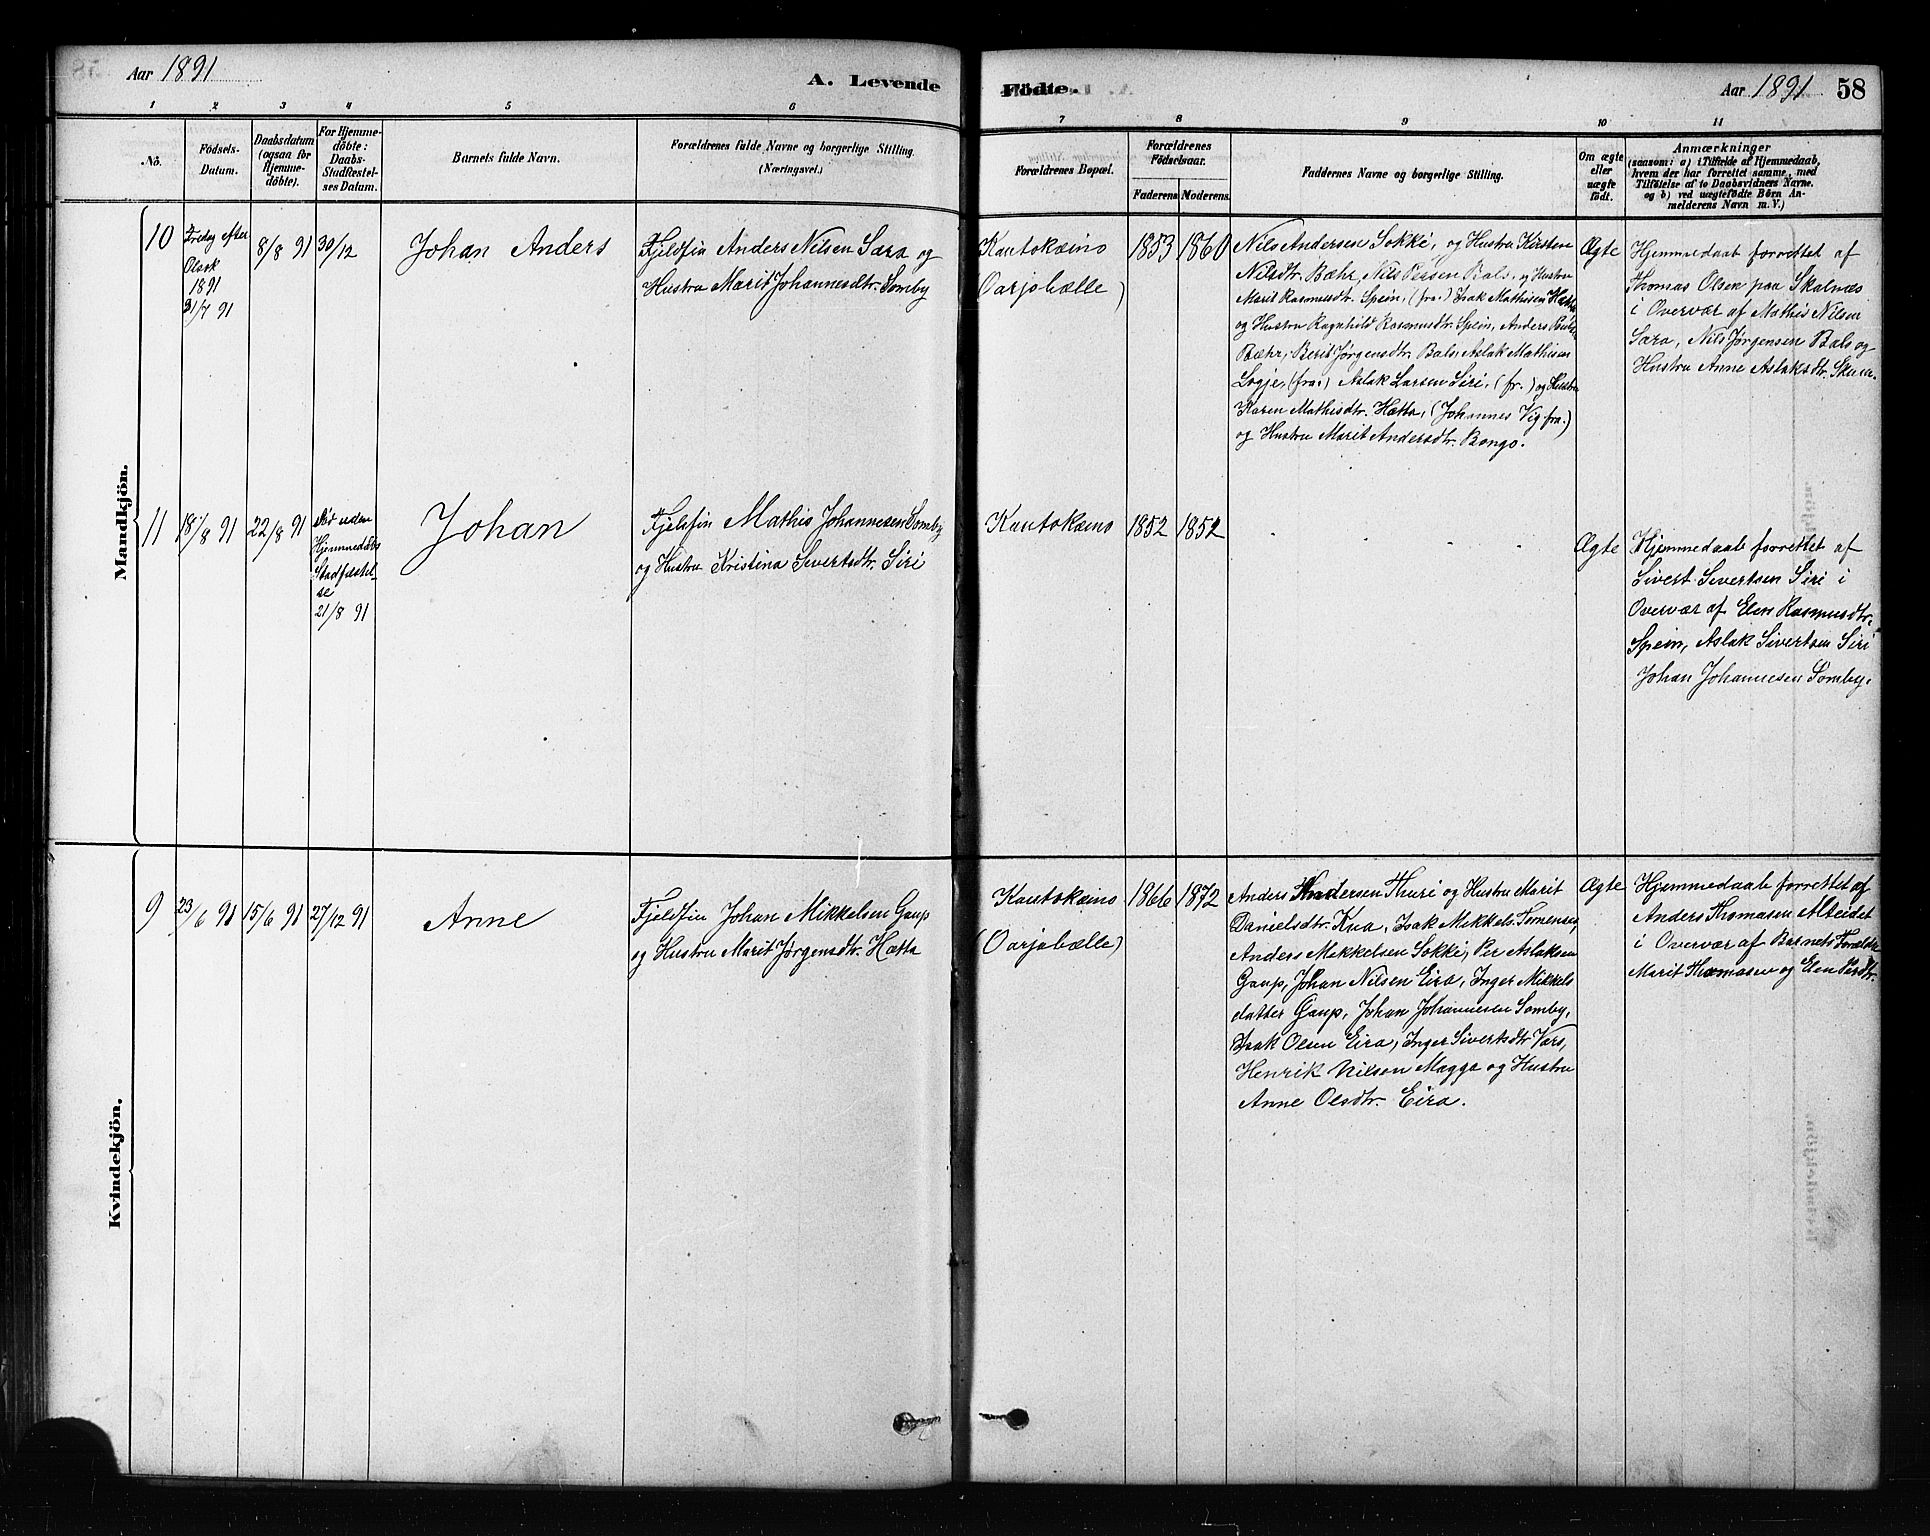 Aar 1891
A. Levende
Födte.
Aar 1891
58
1 2 3 4 5 6 7 8 9 10 11
No.
Födsels-
Datum.
Daabsdatum
(ogsaa for
Hjemme-
döbte).
For Hjemme-
döbte:
Daabs-
Stadfæstel-
ses Datum.
Barnets fulde Navn.
Forældrenes fulde Navne og borgerlige Stilling.
(Næringsvei.)
Forældrenes Bopæl.
Forældrenes
Födselsaar.
Faderens
Moderens
Faddernes Navne og borgerlige Stilling.
Om ægte
eller
uægte
født.
Anmærkninger
(saasom: a) i Tilfælde af Hjemmedaab,
hvem der har forrettet samme, med
Tilföielse af to Daabsvidners Navne,
og b) ved uægtefödte Börn An-
melderens Navn m. V.)
Mandkjön.
10
Fredag efter
Olsok
1891
31/7 91
8/8 91
30/12
Johan Anders
Fjeldfin Anders Nilsen Sara og
Hustru Marit Johannesdtr. Somby
Kautokeino
(Oarjobælle)
1853
1860
Nils Andersen Sokki, og Hustru Kirsten
Nilsdtr. Bæhr, Nils Persen Bals, og Hustru
Marit Rasmusdtr. Spein, (fra.) Isak Mathisen Hætta
og Hustru Ragnhild Rasmusdtr. Spein, Anders Poulsen
Bæhr, Berit Jørgensdtr. Bals, Aslak Mathisen
Logje, (fra.) Aslak Larsen Siri, (fr.) og Hustru
Karen Mathisdtr. Hætta, (Johannes Vig fra.)
og Hustru Marit Andersdtr. Bongo.
Ægte
Hjemmedaab forrettet af
Thomas Olsen paa Skalnæs
i Overvær af Mathis Nilsen
Sara, Nils Jørgensen Bals og
Hustru Anne Aslaksdtr. Skum.
11
18/8 91
22/8 91
Død uden
Hjemmedåbs
Stadfæstel-
se
21/8 91
Johan
Fjeldfin Mathis Johannesen Somby
og Hustru Kristina Sivertsdtr. Siri
Kautokeino
1852
1852
Ægte
Hjemmedaab forrettet af
Sivert Sivertsen Siri i
Overvær af Elen Rasmusdtr.
Spein, Aslak Sivertsen Siri
Johan Johannesen Somby.
Kvindekjön.
9
23/6 91
15/6 91
27/12 91
Anne
Fjeldfin Johan Mikkelsen Gaup
og Hustru Marit Jørgensdtr. Hætta
Kautokeino
(Oarjobælle)
1866
1872
Anders Andersen Thuri og Hustru Marit
Danielsdtr. Kna, Isak Mikkels. Tornensis,
Anders Mikkelsen Sokki, Per Aslaksen
Gaup, Johan Nilsen Eira, Inger Mikkels
datter Gaup, Johan Johannesen Somby,
Isak Olsen Eira, Inger Sivertsdtr. Vars,
Henrik Nilsen Magga og Hustru
Anne Olsdtr. Eira.
Ægte
Hjemmedaab forrettet af
Anders Thomasen Alteidet
i Overvær af Barnets Forældre
Marit Thomasen og Elen Persdtr.